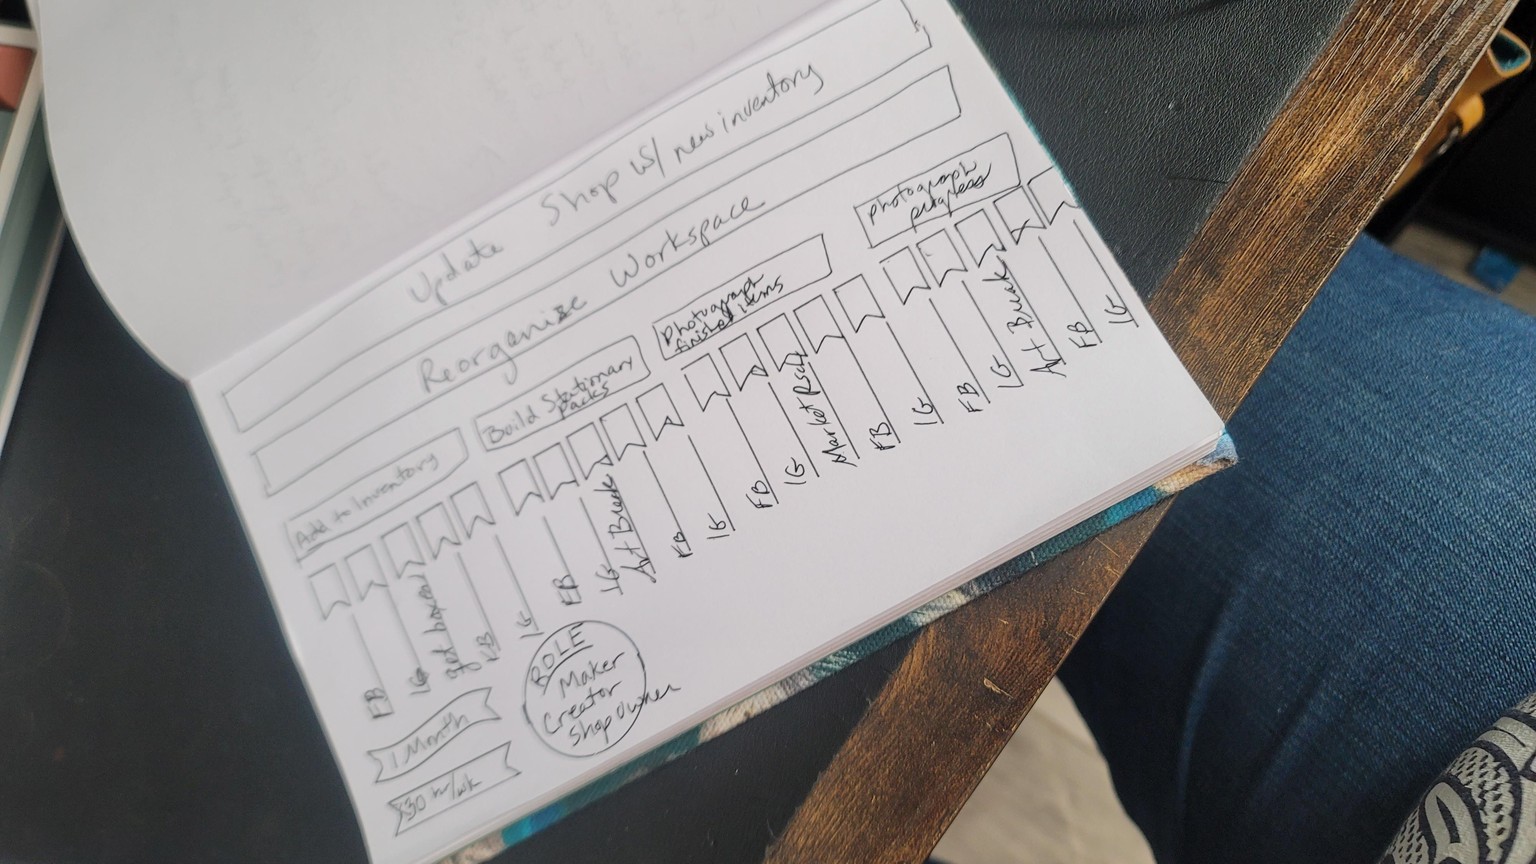 Update Shop w/ new inventory
Reorganize Workspace
Add to Inventory
Build Stationary
packs
photograph
finished items
photograph
progress
FB
IG
get boxes
FB
IG
FB
IG
Art Break
FB
IG
FB
IG
Market Rsch
FB
IG
FB
IG
Art Break
FB
IG
1 Month
30 hr/wk
ROLE
Maker
Creator
Shop owner